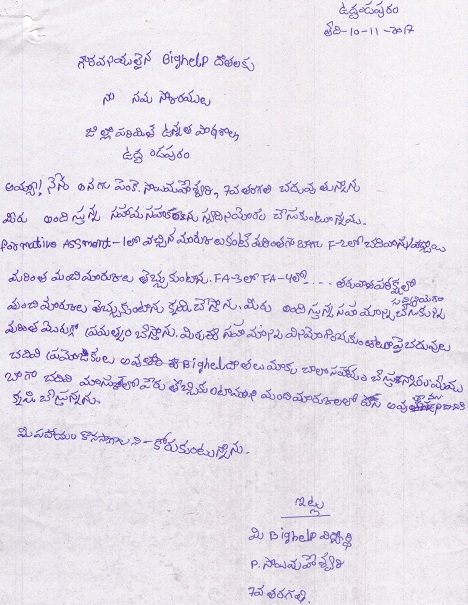 ఉద్దండపురం
తేది-10-11-2017
గౌరవనీయులైన Bighelp దాతలకు
నా నమస్కారములు
జిల్లా పరిషత్ ఉన్నత పాఠశాల,
ఉద్దండపురం
అయ్యా! నేను అనగా పెంకె. సాయిమహేశ్వరి, 7వ తరగతి చదువుతున్నాను
మీరు అందిస్తున్న సహాయసహకారాలను స్వదినియోగం చేసుకుంటున్నాము.
Formative Assment-1లో వచ్చిన మార్కులకంటే మరింతగా బాగా F-2లో చదివి
మరింత మంచి మార్కులు తెచ్చుకుంటాను. FA-3లో FA-4లో .... తరువాత పరీక్షల్లో
మంచి మార్కులు తెచ్చుకుంటాను కృషి చేస్తాను. మీరు అందిస్తున్న సహాయాన్ని సద్వినియోగం చేసుకుని
మరింత మెరుగ్గా ప్రయత్నం చేస్తాను. మీరు ఈ సహాయాన్ని వినియోగించుకుంటూ పై చదువులు
చదివి ప్రయోజకులు అవు ఈ Bighelp దాతలు మాకు చాలా సహాయం చేస్తున్నారు మేము
బాగా చదివి మా స్కూల్లో పేరు తెచ్చుకుంటాము మంచి మార్కులలో
కృషి చేస్తున్నాను.
మీ సహాయం కొనసాగాలని - కోరుకుంటున్నాను.
ఇట్లు
మీ Bighelp విద్యార్థి
P. సాయిమహేశ్వరి
7వ తరగతి.